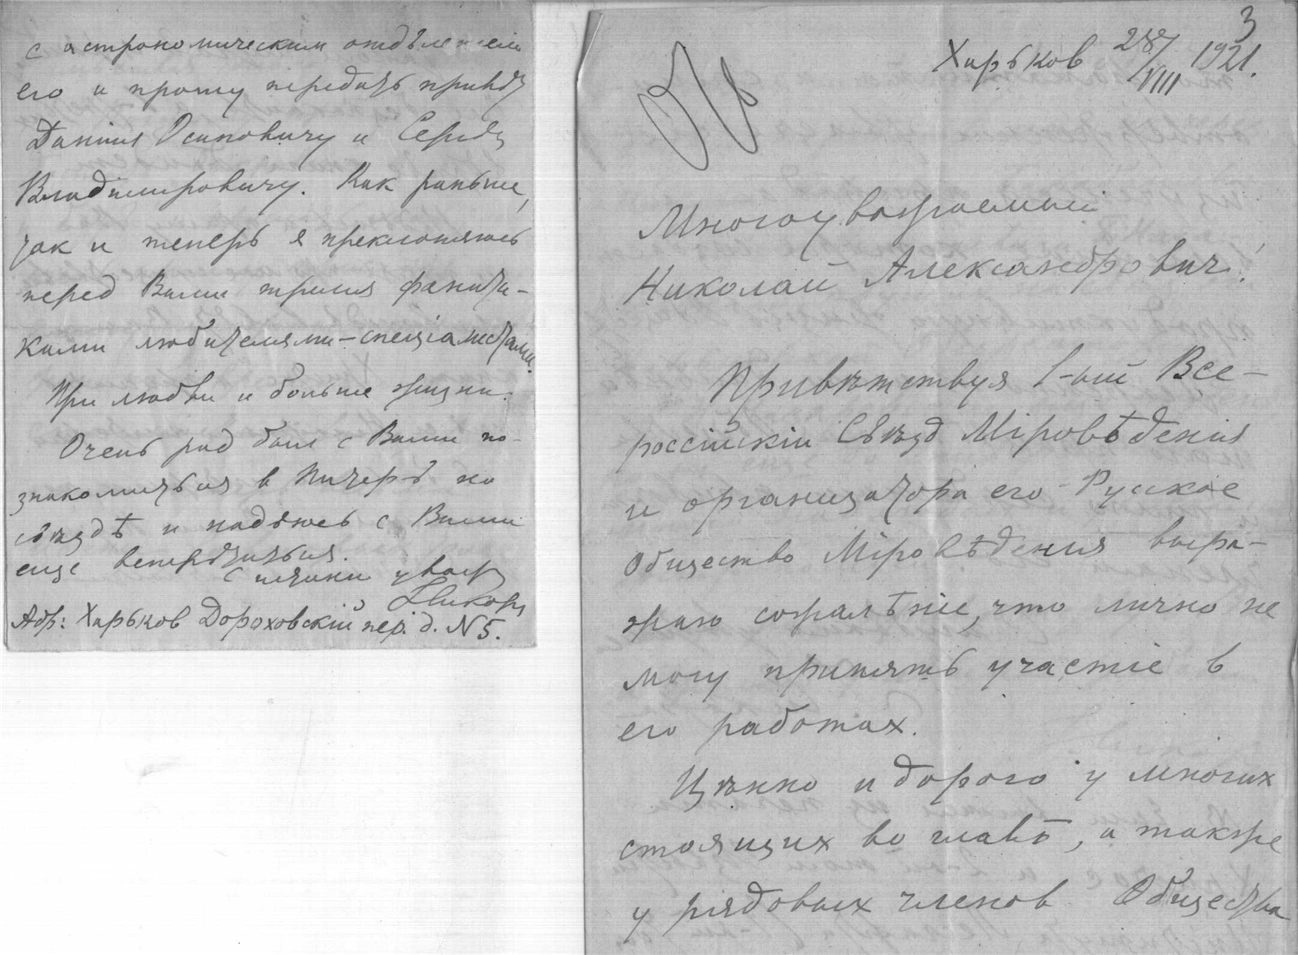 с астрономическим отдѣленіем
его и прошу передать привѣт
Даніил Осиповичу и Сергѣю
Владимировичу. Как раньше,
так и теперь я преклоняюсь
перед Вами тремя фанати-
ками любителями-спеціалистами.
При любви и больше жизни.
Очень рад был с Вами по-
знакомиться в Питерѣ на
съѣздѣ и надѣюсь с Вами
еще встрѣтиться.
С
Адр: Харьков Дороховскій пер. д. N 5.
3
Харьков 28/VIII 1921.
Многоуважаемый
Николай Александрович!
Привѣтствуя 1-ый Все-
россійскій Съѣзд Міровѣдения
и организатора его Русское
Общество Міровѣдения выра-
жаю сожалѣніе, что лично не
могу принять участіе в
его работах.
Цѣнно и дорого у многих
стоящих во главѣ, а также
у рядовых членов Общества